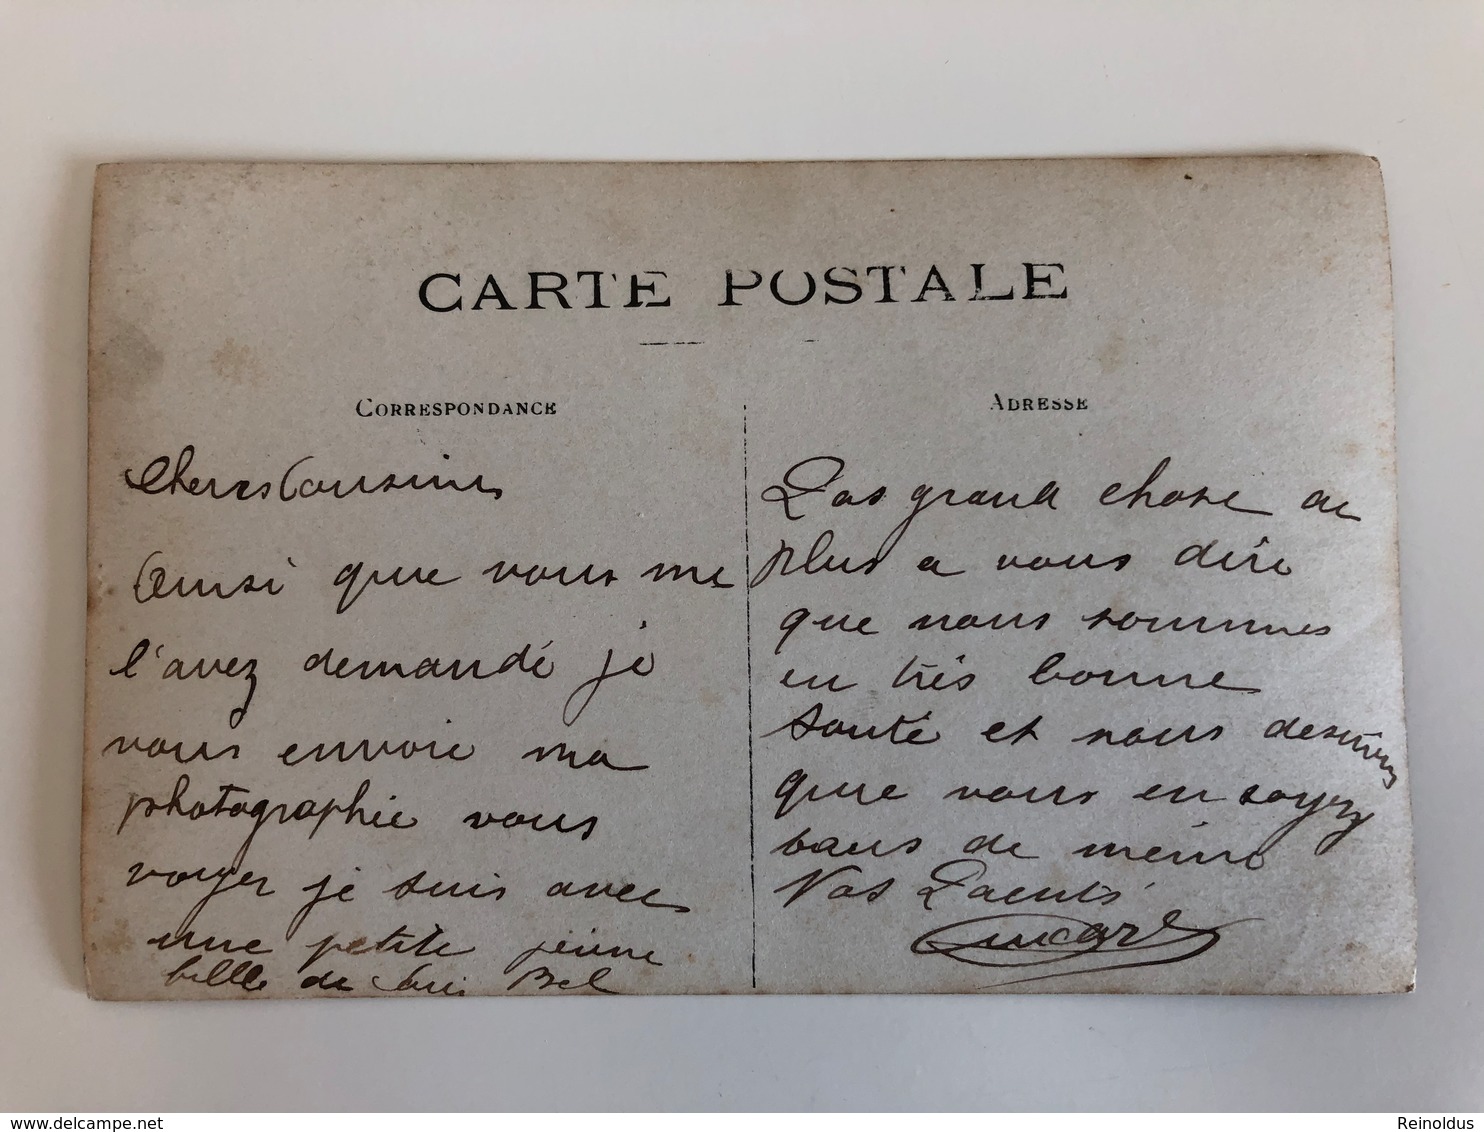 CARTE POSTALE
CORRESPONDANCE
ADRESSE
Chers Cousins
Ainsi que vous me
l'avez demandé je
vous envoie ma
photographie vous
voyer je suis avec
une petite jeune
bille de
Pas grand chose de
plus a vous dire
que nous sommes
en très bonne
santé et nous desirons
que vous en soyez
tous de même
Vos
Reinoldus